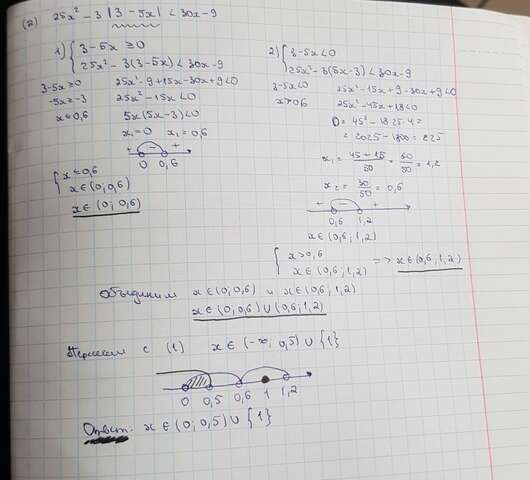 (2) 25x² - 3 |3 - 5x| < 30x - 9
1) { 3 - 5x ≥ 0
25x² - 3(3-5x) < 30x - 9
3-5x ≥ 0 25x² - 9 + 15x - 30x + 9 < 0
-5x ≥ -3 25x² - 15x < 0
x ≤ 0,6 5x(5x-3) < 0
x₁ = 0 x₁ = 0,6
+ - +
0 0,6
{ x ≤ 0,6
x ∈ (0; 0,6)
x ∈ (0; 0,6)
2) { 3 - 5x < 0
25x² - 3(5x-3) < 30x - 9
3-5x < 0 25x² - 15x + 9 - 30x + 9 < 0
x > 0,6 25x² - 45x + 18 < 0
D = 45² - 18·25·4 =
= 2025 - 1800 = 225
x₁ = 45+15/50 = 60/50 = 1,2
x₂ = 30/50 = 0,6
+ - +
0,6 1,2
x ∈ (0,6; 1,2)
{ x > 0,6
x ∈ (0,6; 1,2) => x ∈ (0,6; 1,2)
Объединим x ∈ (0; 0,6) и x ∈ (0,6; 1,2)
x ∈ (0; 0,6) ∪ (0,6; 1,2)
Пересечем с (1) x ∈ (-∞; 0,5) ∪ {1}
0 0,5 0,6 1 1,2
Ответ: x ∈ (0; 0,5) ∪ {1}